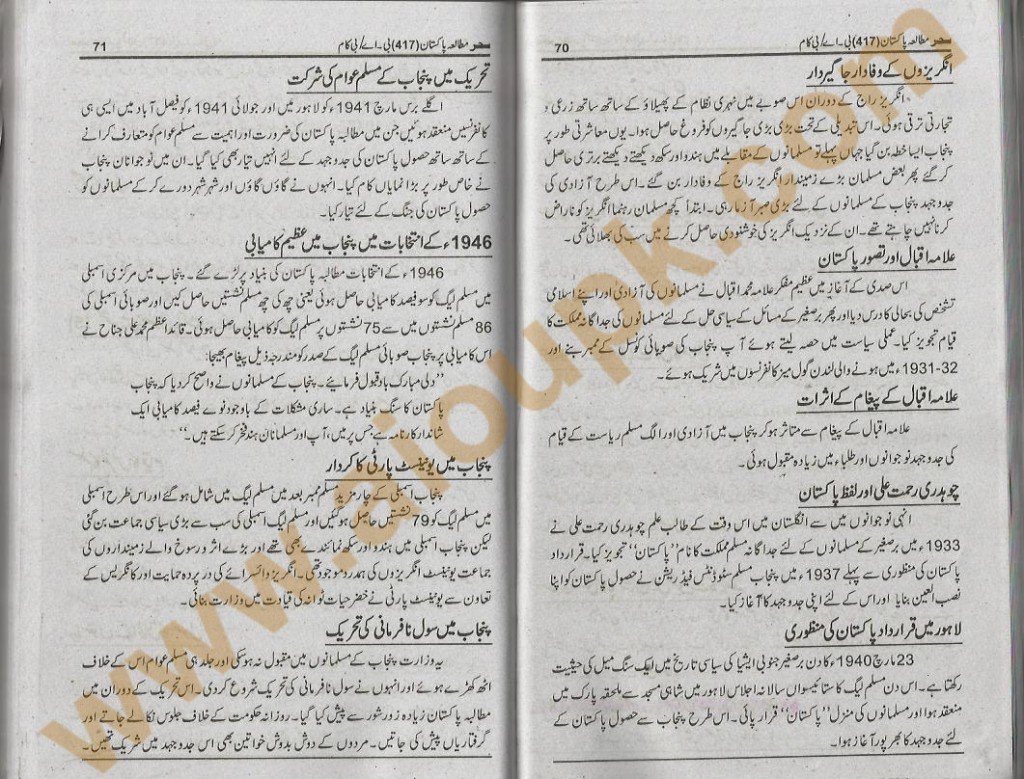 سحر مطالعہ پاکستان (417) بی۔اے/بی کام 70
انگریزوں کے وفادار جاگیردار
انگریز راج کے دوران اس صوبے میں نہری نظام کے پھیلاؤ کے ساتھ ساتھ زرعی و
تجارتی ترقی ہوئی۔ اس تبدیلی کے تحت بڑی بڑی جاگیروں کو فروغ حاصل ہوا۔ یوں معاشرتی طور پر
پنجاب ایسا خطہ بن گیا جہاں پہلے تو مسلمانوں کے مقابلے میں ہندو اور سکھ دیکھتے دیکھتے برتری حاصل
کر گئے پھر بعض مسلمان بڑے زمیندار انگریز راج کے وفادار بن گئے۔ اس طرح آزادی کی
جدوجہد پنجاب کے مسلمانوں کے لئے بڑی صبر آزما رہی۔ ابتداً کچھ مسلمان رہنما انگریز کو ناراض
کرنا نہیں چاہتے تھے۔ ان کے نزدیک انگریز کی خوشنودی حاصل کرنے میں سب کی بھلائی تھی۔
علامہ اقبال اور تصور پاکستان
اس صدی کے آغاز میں عظیم مفکر علامہ محمد اقبال نے مسلمانوں کی آزادی اور اپنے اسلامی
تشخص کی بحالی کا درس دیا اور پھر برصغیر کے مسائل کے سیاسی حل کے لئے مسلمانوں کی جداگانہ مملکت کا
قیام تجویز کیا۔ عملی سیاست میں حصہ لیتے ہوئے آپ پنجاب کی صوبائی کونسل کے ممبر بنے اور
1931-32 میں ہونے والی لندن گول میز کانفرنسوں میں شریک ہوئے۔
علامہ اقبال کے پیغام کے اثرات
علامہ اقبال کے پیغام سے متاثر ہو کر پنجاب میں آزادی اور الگ مسلم ریاست کے قیام
کی جدوجہد نوجوانوں اور طلباء میں زیادہ مقبول ہوئی۔
چوہدری رحمت علی اور لفظ پاکستان
انہی نوجوانوں میں سے انگلستان میں اس وقت کے طالب علم چوہدری رحمت علی نے
1933ء میں برصغیر کے مسلمانوں کے لئے جداگانہ مسلم مملکت کا نام ”پاکستان“ تجویز کیا۔ قرارداد
پاکستان کی منظوری سے پہلے 1937ء میں پنجاب مسلم سٹوڈنٹس فیڈریشن نے حصول پاکستان کو اپنا
نصب العین بنایا اور اس کے لئے اپنی جدوجہد کا آغاز کیا۔
لاہور میں قرارداد پاکستان کی منظوری
23 مارچ 1940ء کا دن برصغیر جنوبی ایشیا کی سیاسی تاریخ میں ایک سنگ میل کی حیثیت
رکھتا ہے۔ اس دن مسلم لیگ کا ستائیسواں سالانہ اجلاس لاہور میں شاہی مسجد سے ملحقہ پارک میں
منعقد ہوا اور مسلمانوں کی منزل ”پاکستان“ قرار پائی۔ اس طرح پنجاب سے حصول پاکستان کے
لئے جدوجہد کا بھرپور آغاز ہوا۔
سحر مطالعہ پاکستان (417) بی۔اے/بی کام 71
تحریک میں پنجاب کے مسلم عوام کی شرکت
اگلے برس مارچ 1941ء کو لاہور میں اور جولائی 1941ء کو فیصل آباد میں ایسی ہی
کانفرنسیں منعقد ہوئیں جن میں مطالبہ پاکستان کی ضرورت اور اہمیت سے مسلم عوام کو متعارف کرانے
کے ساتھ ساتھ حصول پاکستان کی جدوجہد کے لئے انہیں تیار بھی کیا گیا۔ ان میں نوجوانان پنجاب
نے خاص طور پر بڑا نمایاں کام کیا۔ انہوں نے گاؤں گاؤں اور شہر شہر دورے کر کے مسلمانوں کو
حصول پاکستان کی جنگ کے لئے تیار کیا۔
1946ء کے انتخابات میں پنجاب میں عظیم کامیابی
1946ء کے انتخابات مطالبہ پاکستان کی بنیاد پر لڑے گئے۔ پنجاب میں مرکزی اسمبلی
میں مسلم لیگ کو سو فیصد کامیابی حاصل ہوئی یعنی چھ کی چھ مسلم نشستیں حاصل کیں اور صوبائی اسمبلی کی
86 مسلم نشستوں میں سے 75 نشستوں پر مسلم لیگ کو کامیابی حاصل ہوئی۔ قائداعظم محمد علی جناح نے
اس کامیابی پر پنجاب صوبائی مسلم لیگ کے صدر کو مندرجہ ذیل پیغام بھیجا:
”دلی مبارک باد قبول فرمائیے۔ پنجاب کے مسلمانوں نے واضح کر دیا کہ پنجاب
پاکستان کا سنگ بنیاد ہے۔ ساری مشکلات کے باوجود نوے فیصد کامیابی ایک
شاندار کارنامہ ہے جس پر میں، آپ اور مسلمانان ہند فخر کر سکتے ہیں۔“
پنجاب میں یونینسٹ پارٹی کا کردار
پنجاب اسمبلی کے چار مزید مسلم ممبر بعد میں مسلم لیگ میں شامل ہو گئے اور اس طرح اسمبلی
میں مسلم لیگ کو 79 نشستیں حاصل ہو گئیں اور مسلم لیگ اسمبلی کی سب سے بڑی سیاسی جماعت بن گئی
لیکن پنجاب اسمبلی میں ہندو اور سکھ نمائندے بھی تھے اور بڑے اثر و رسوخ والے زمینداروں کی
جماعت یونینسٹ انگریزوں کی ہمدرد موجود تھی۔ انگریز وائسرائے کی در پردہ حمایت اور کانگریس کے
تعاون سے یونینسٹ پارٹی نے خضر حیات ٹوانہ کی قیادت میں وزارت بنائی۔
پنجاب میں سول نافرمانی کی تحریک
یہ وزارت پنجاب کے مسلمانوں میں مقبول نہ ہو سکی اور جلد ہی مسلم عوام اس کے خلاف
اٹھ کھڑے ہوئے اور انہوں نے سول نافرمانی کی تحریک شروع کر دی۔ اس تحریک کے دوران میں
مطالبہ پاکستان زیادہ زور شور سے پیش کیا گیا۔ روزانہ حکومت کے خلاف جلوس نکالے جاتے اور
گرفتاریاں پیش کی جاتیں۔ مردوں کے دوش بدوش خواتین بھی اس جدوجہد میں شریک تھیں۔
www.aioupk.com